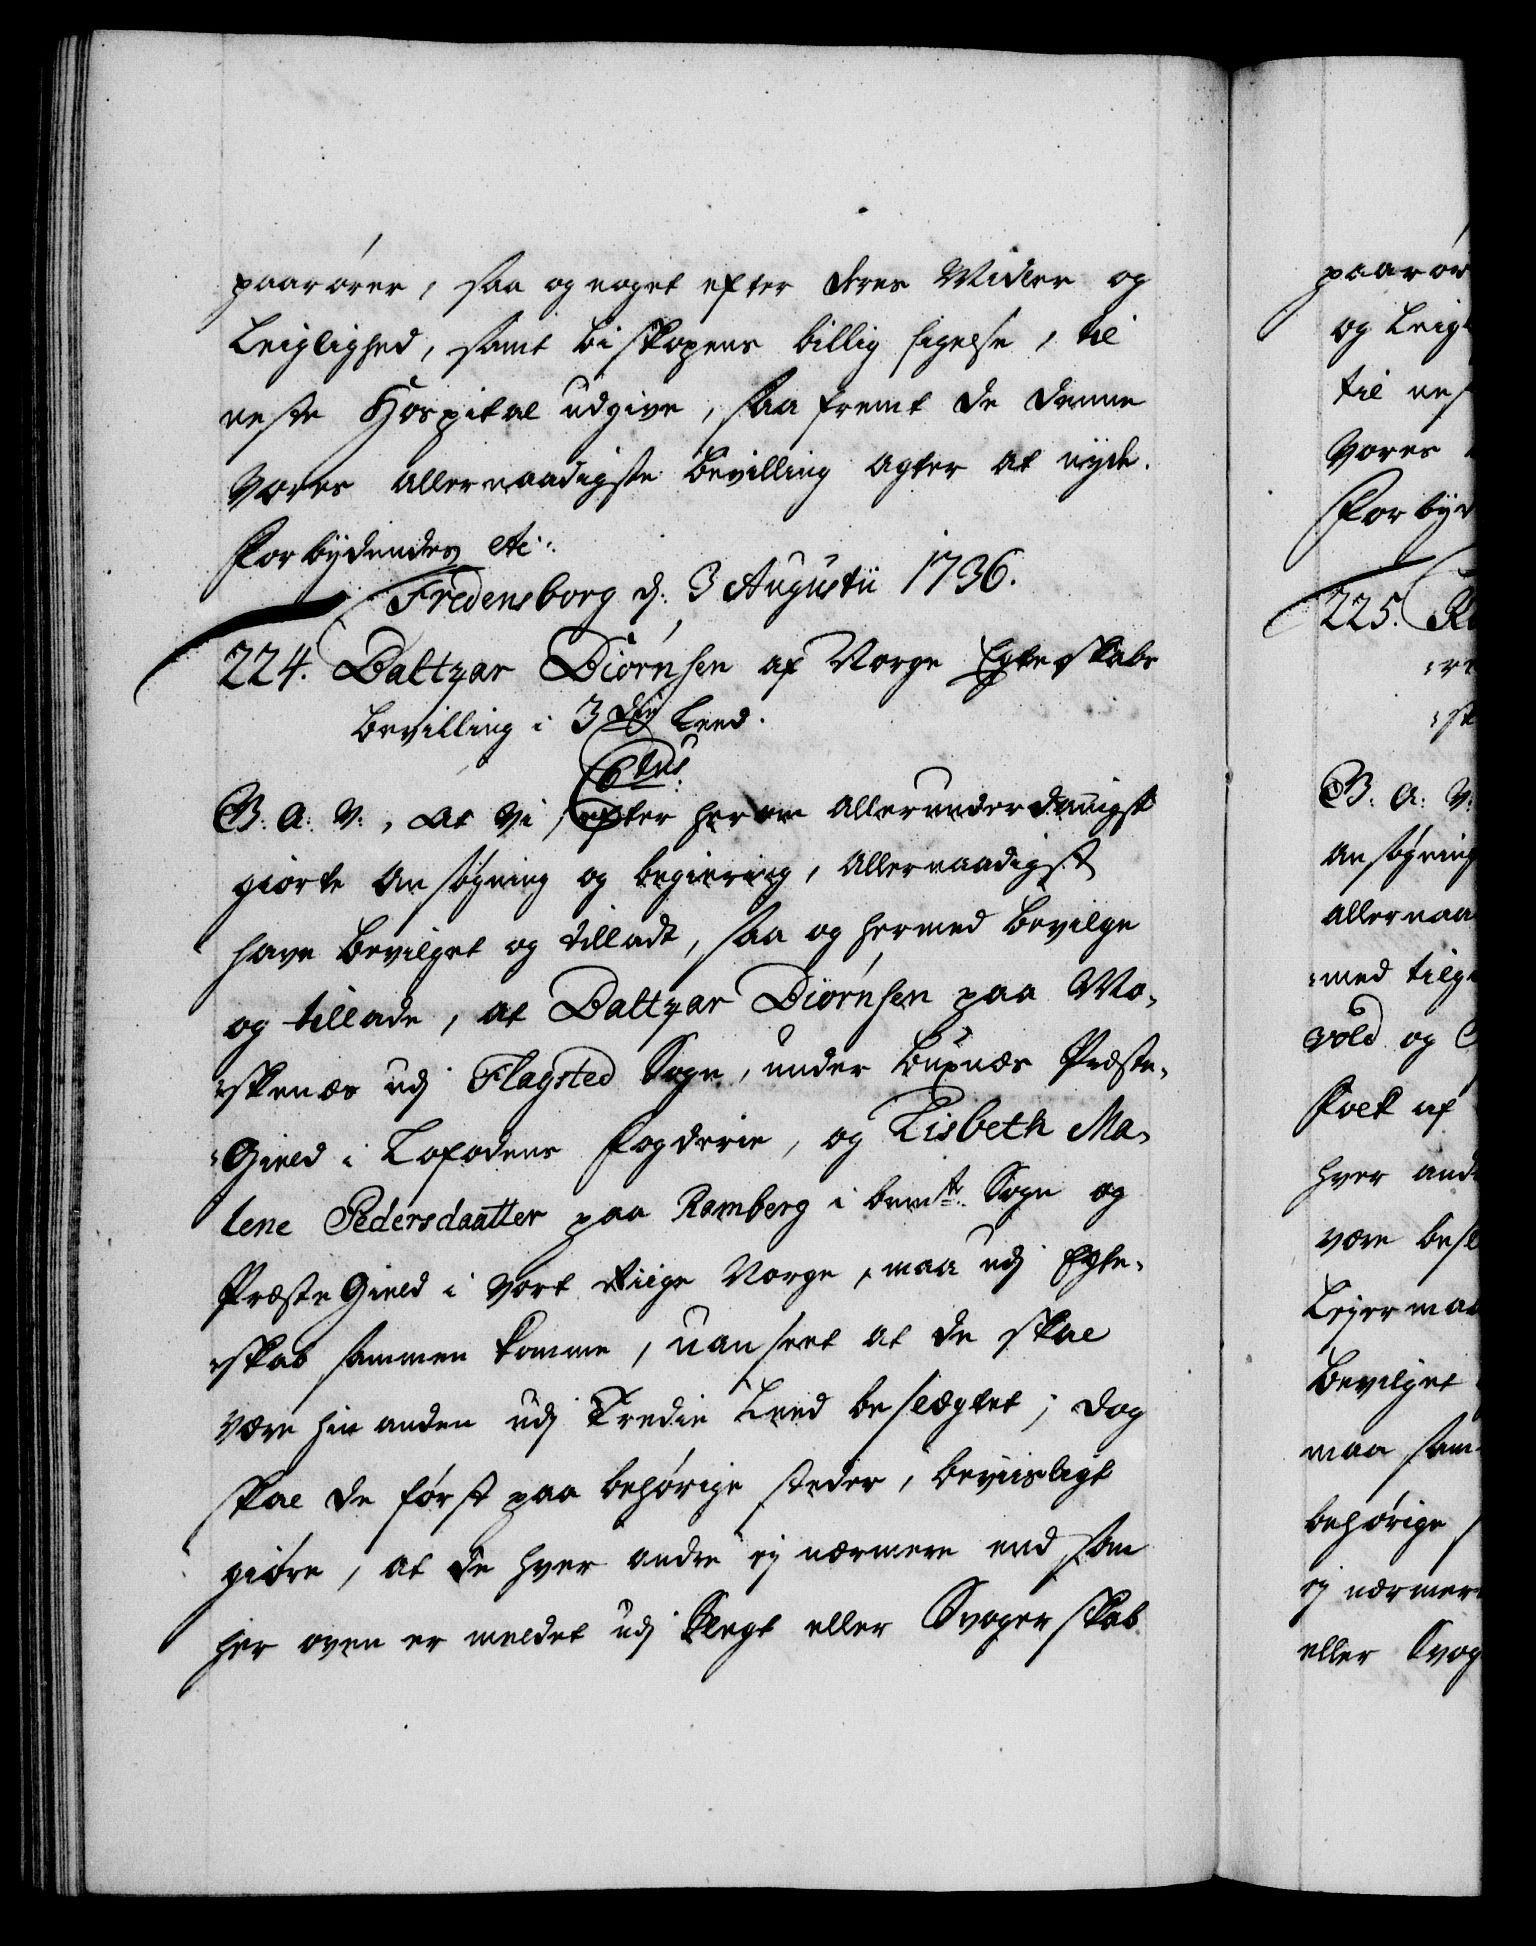 paarører, saa og noget efter deres Midler og
Leiglighed, samt biskopens billig sigelse, til
neste Hospital udgive, saa fremt de denne
vores allernaadigste bevilling agter at nyde.
Forbydendes etc:.
Fredensborg d: 3 Augustii 1736.
224. Baltzar Biørnsen af Norge Egteskabs
bevilling i 3die Leed.
G. A. V., at vi, efter herom allerunderdanigst
giorte ansøgning og begiering, allernaadigst
have bevilget og tilladt, saa og hermed bevilge
og tillade, at Baltzar Biørnsen paa Mo-
skenæs udj Flagsted Sogn, under Buxnæs Præste-
Gield i Lofodens Fogderie, og Lisbeth Ma-
lene Pedersdaatter paa Ramberg i bemte. Sogn og
Præste Gield i vort Riige Norge, maa udj Egte-
skab sammen komme, uanseet at de skal
være hin anden udj Tredie Leed beslægtet; dog
skal de først paa behørige steder, beviisligt
giøre, at de hver andre ej nærmere end som
her oven er meldet udj Slegt eller Svogerskab
paarør
og Leigl
til nes
vores
Forbyd
225.
G. A. V.
ansøgning
allernaa
med tilg
vold og
Folk af
hver and
være besl
Leyermaa
bevilget
maa sam
behørige
ej nærmer
eller Svog